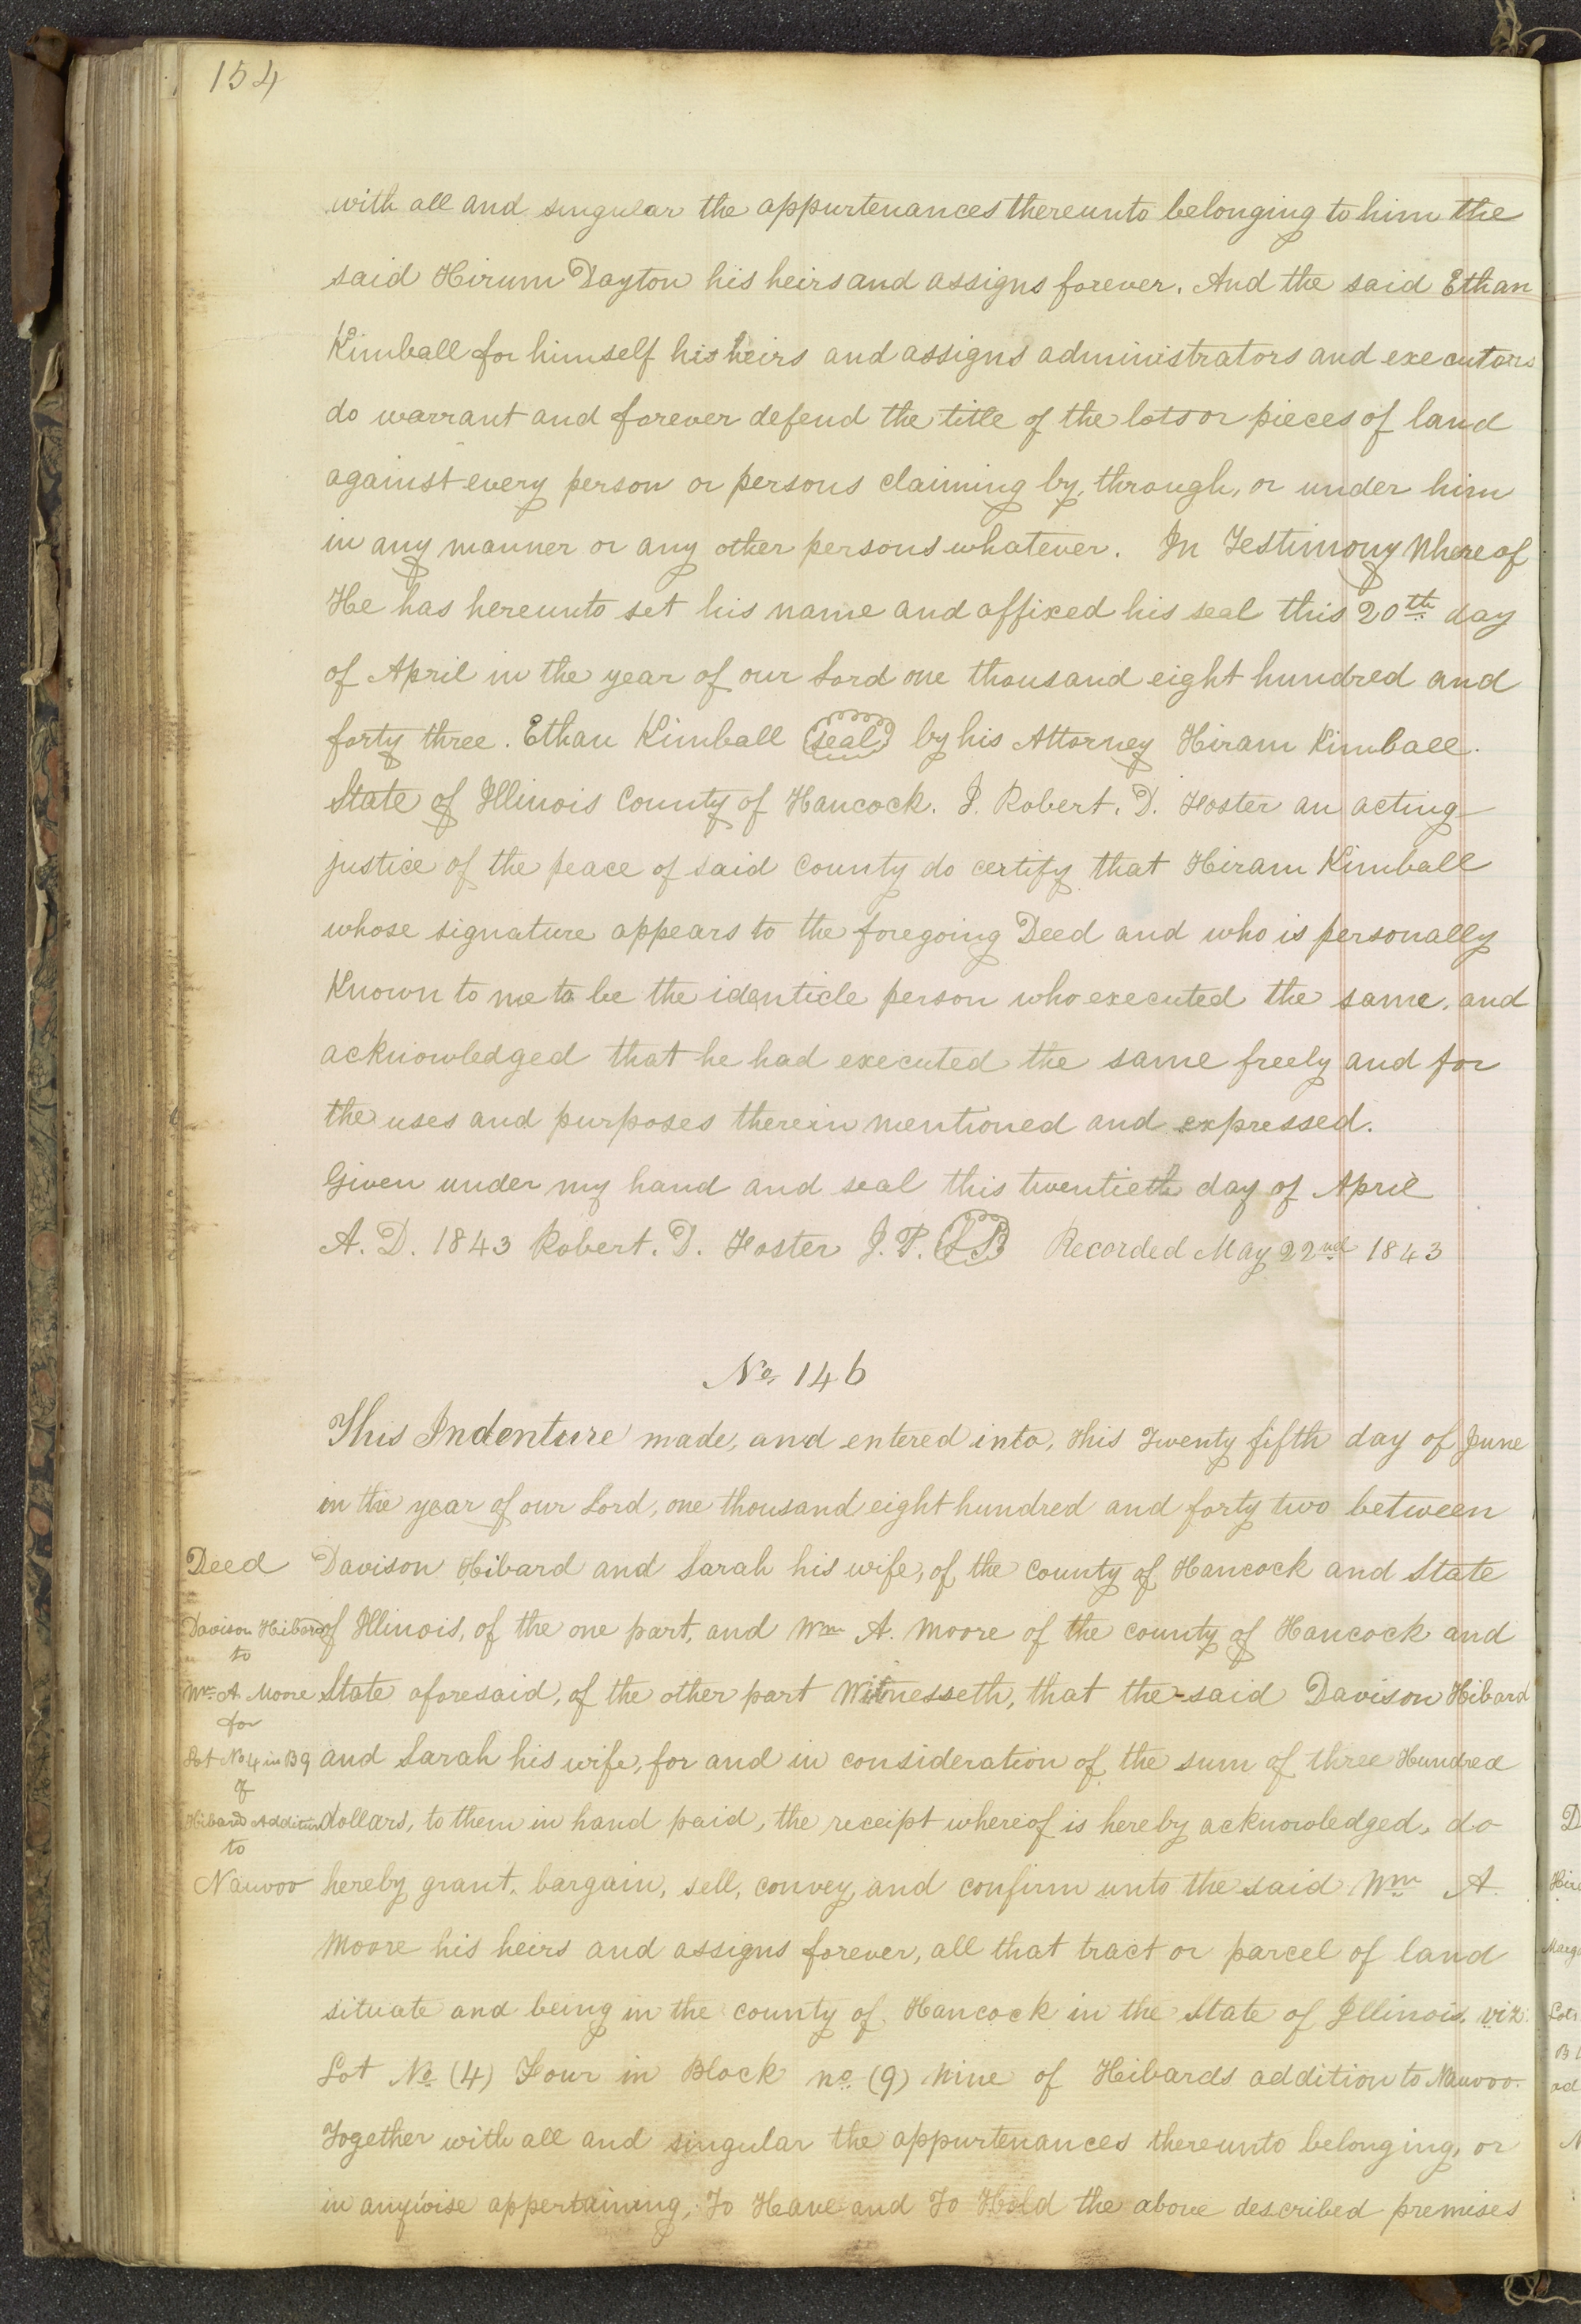 154
with all and singular the appurtenances thereunto belonging to him the
said Hirum Dayton his heirs and assigns forever. And the said Ethan
Kimball for himself his heirs and assigns administrators and executors
do warrant and forever defend the title of the lots or pieces of land
against every person or persons claiming by, through, or under him
in any manner or any other persons whatever. In Testimony Whereof
He has hereunto set his name and affixed his seal this 20th day
of April in the year of our Lord one thousand eight hundred and
forty three. Ethan Kimball (seal) by his Attorney Hiram Kimball.
State of Illinois County of Hancock. I. Robert. D. Foster an acting
justice of the peace of said County do certify that Hiram Kimball
whose signature appears to the foregoing Deed and who is personally
Known to me to be the identicle person who executed the same, and
acknowledged that he had executed the same freely and for
the uses and purposes therein mentioned and expressed.
Given under my hand and seal this twentieth day of April
A. D. 1843 Robert. D. Foster J. P. (LS) Recorded May 22nd 1843
No. 146
This Indenture made, and entered into, this Twenty fifth day of June
in the year of our Lord, one thousand eight hundred and forty two between
Deed
Davison Hibard and Sarah his wife, of the County of Hancock and State
Davison Hibard
of Illinois, of the one part, and Wm A. Moore of the county of Hancock and
to
Wm A Moore
State aforesaid, of the other part Witnesseth, that the said Davison Hibard
for
Lot No 4 in B 9
and Sarah his wife, for and in consideration of the sum of three Hundred
of
Hibards Addition
dollars, to them in hand paid, the receipt whereof is hereby acknowledged, do
to
Nauvoo
hereby grant, bargain, sell, convey, and confirm unto the said Wm A.
Moore his heirs and assigns forever, all that tract or parcel of land
situate and being in the county of Hancock in the State of Illinois, viz.
Lot No (4) Four in Block no (9) Nine of Hibards addition to Nauvoo.
Together with all and singular the appurtenances thereunto belonging, or
in anywise appertaining, To Have and To Hold the above described premises